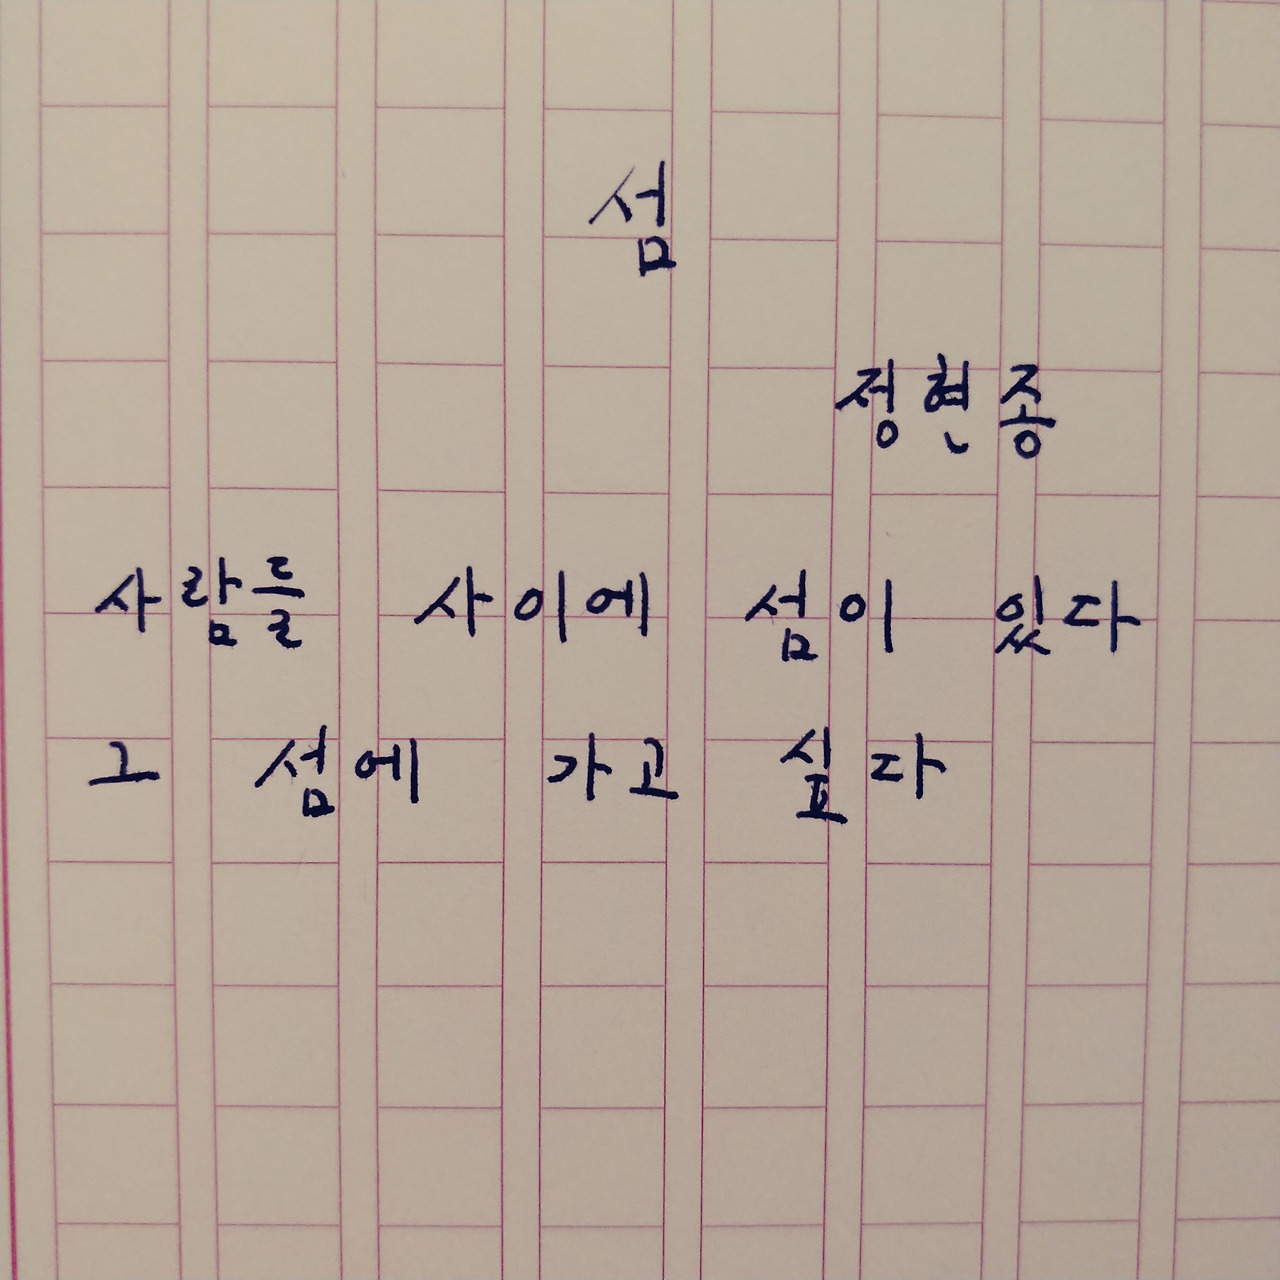 섬
정현종
사람들 사이에 섬이 있다
그 섬에 가고 싶다